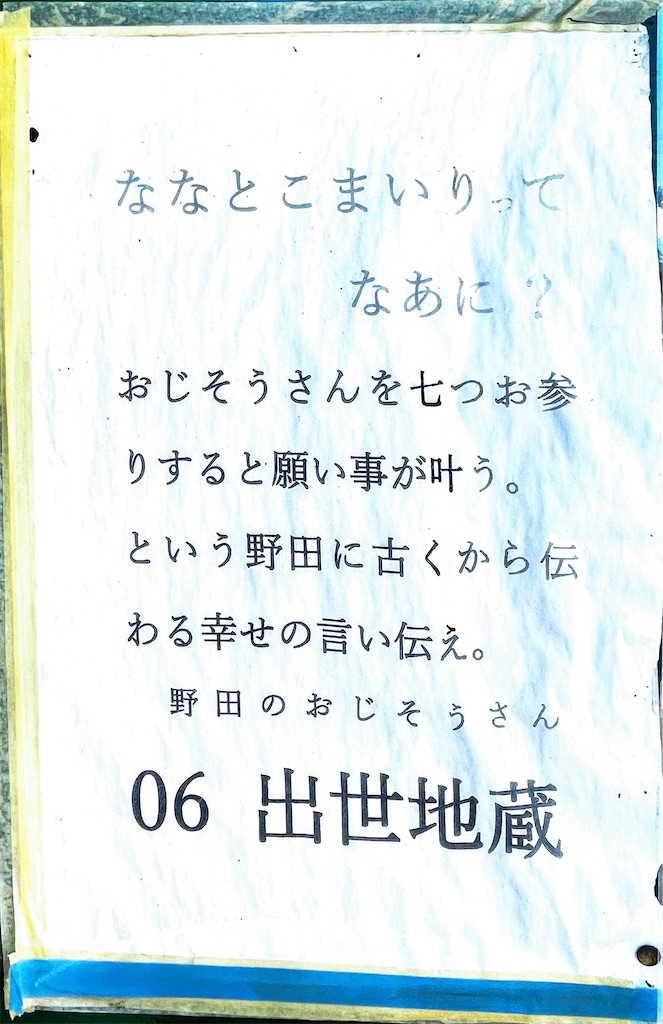 ななとこまいりって
なあに？
おじぞうさんを七つお参
りすると願い事が叶う。
という野田に古くから伝
わる幸せの言い伝え。
野田のおじぞうさん
06 出世地蔵